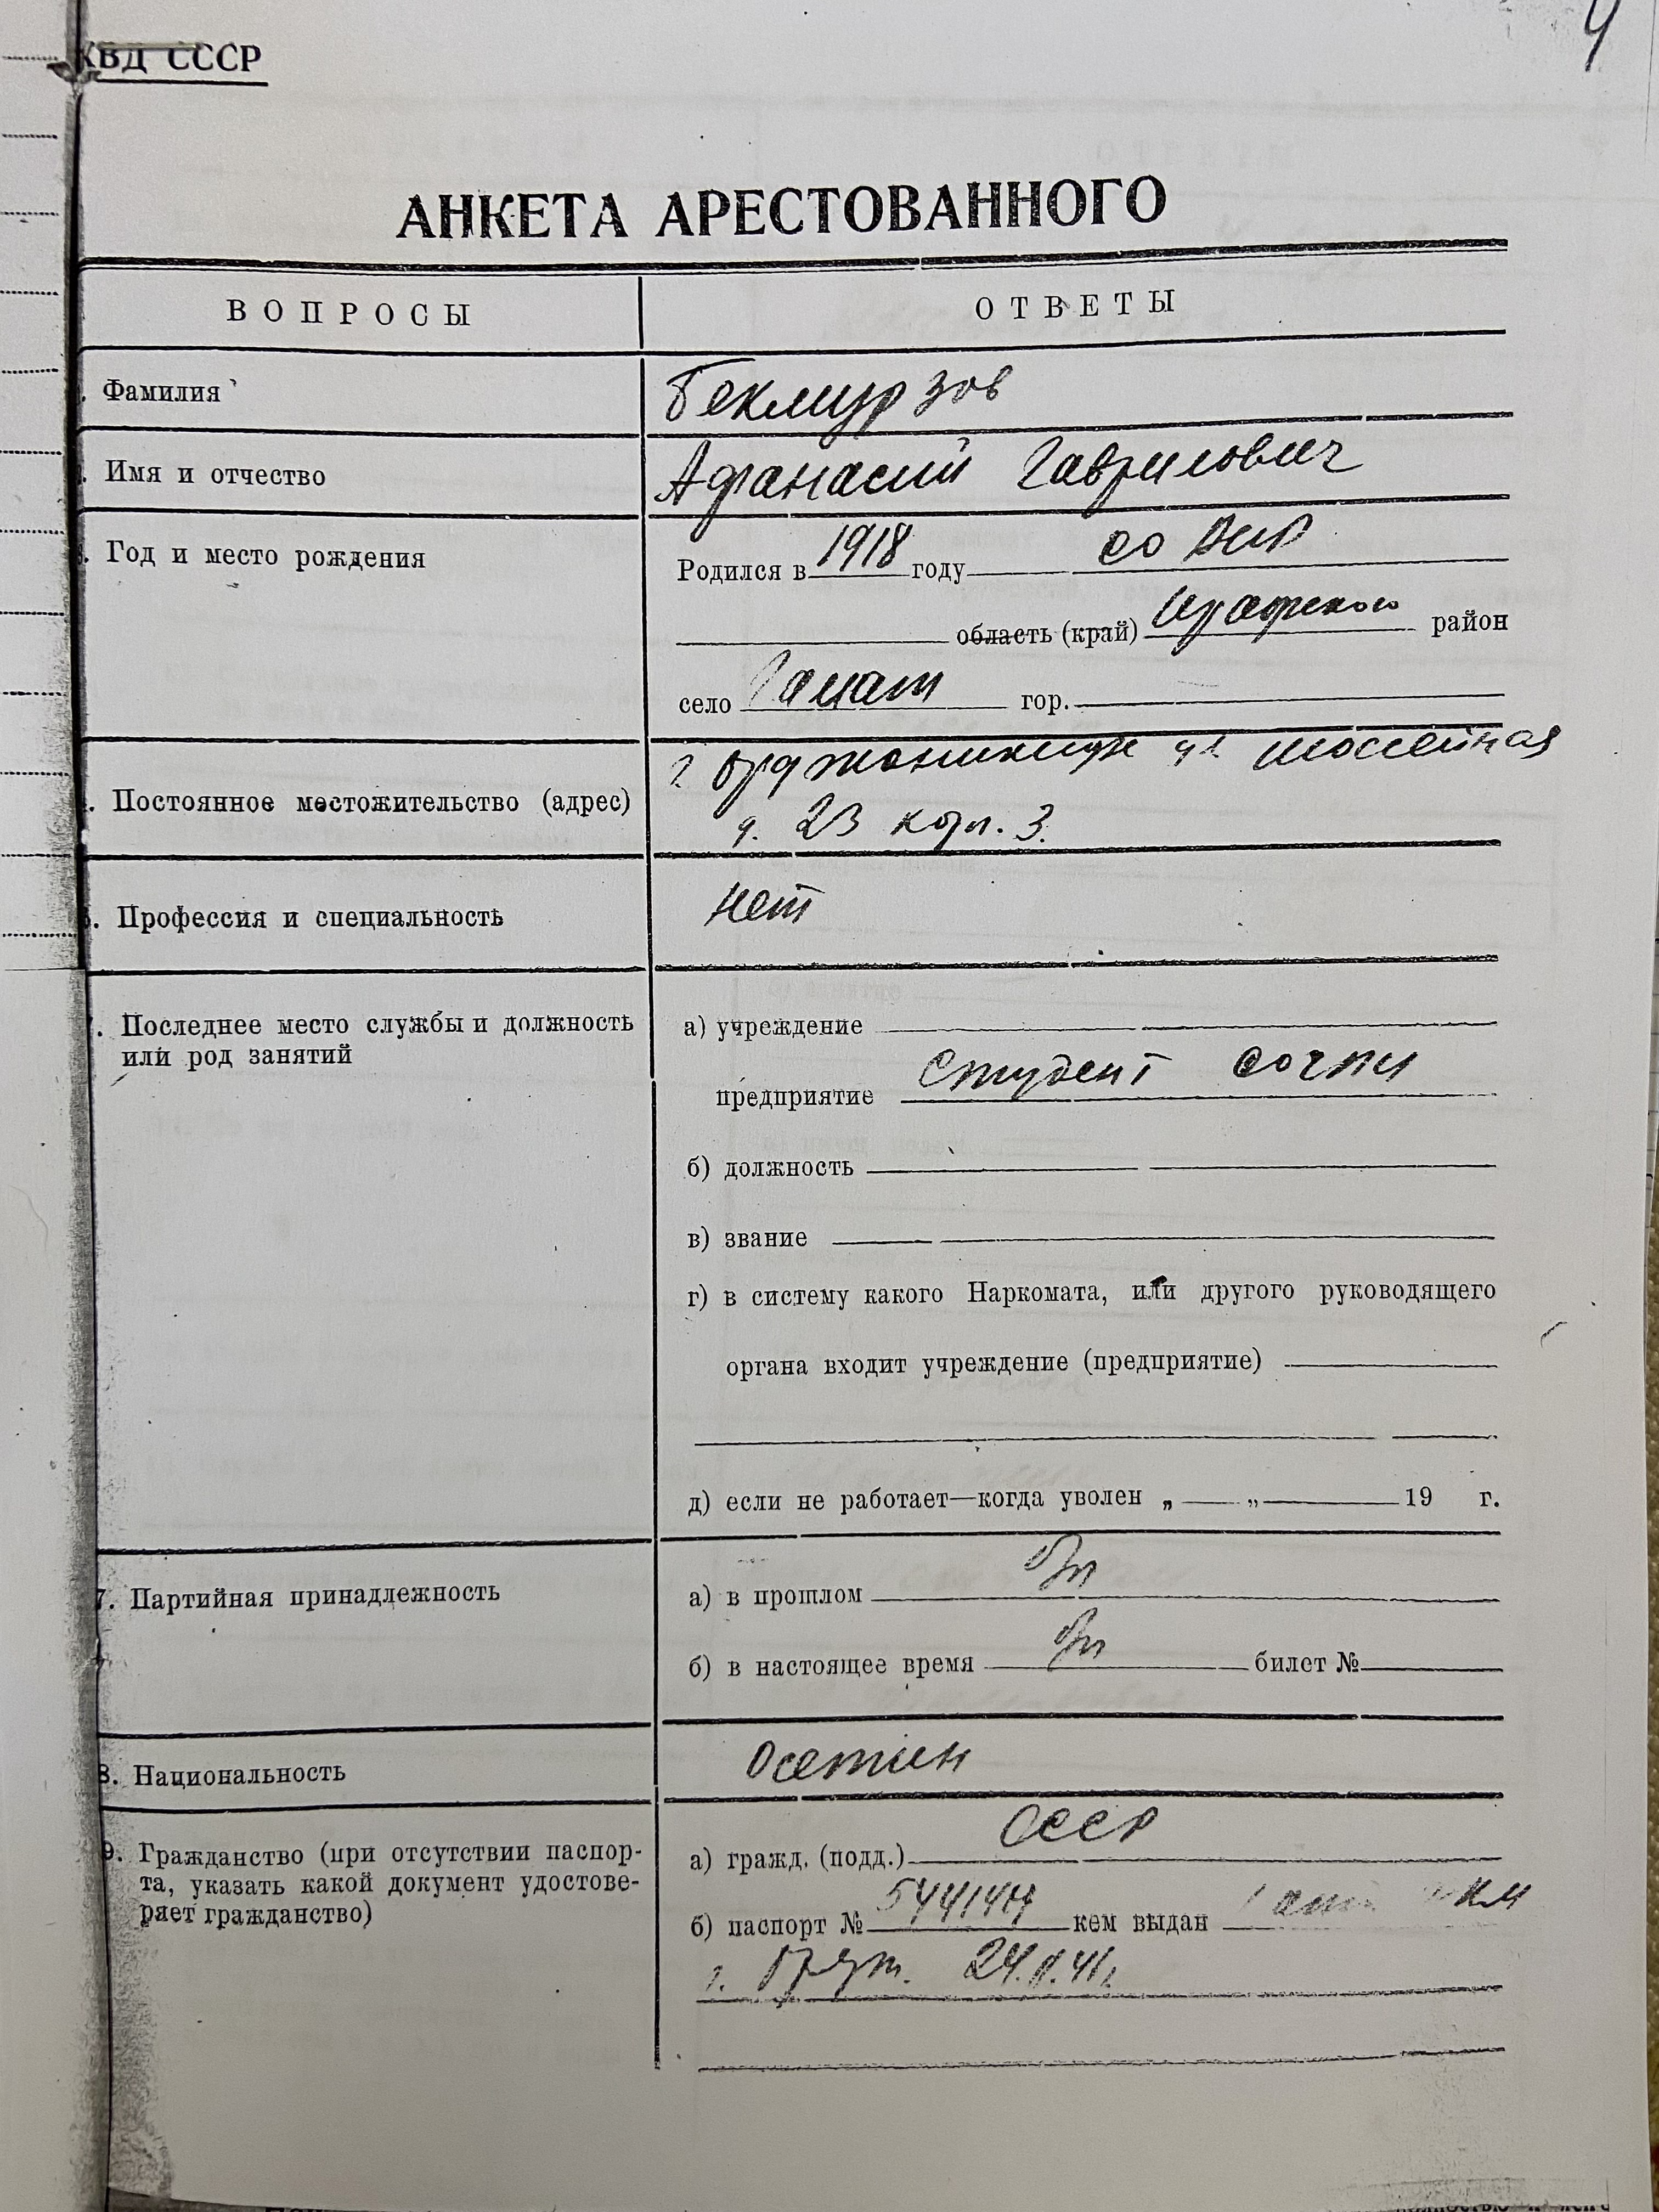 КВД СССР
4
АНКЕТА АРЕСТОВАННОГО
ВОПРОСЫ ОТВЕТЫ
. Фамилия Бекмурзов
. Имя и отчество Афанасий Гаврилович
. Год и место рождения Родился в 1918 году СО АССР
область (край) Ирафского район
село Галиат гор.
г. Орджоникидзе ул. Шоссейная
. Постоянное местожительство (адрес) д. 23 корп. 3.
. Профессия и специальность нет
. Последнее место службы и должность а) учреждение
или род занятий
предприятие студент СОГПИ
б) должность
в) звание
г) в систему какого Наркомата, или другого руководящего
органа входит учреждение (предприятие)
д) если не работает—когда уволен „ “ 19 г.
7. Партийная принадлежность а) в прошлом б/п
б) в настоящее время б/п билет №
8. Национальность Осетин
9. Гражданство (при отсутствии паспор- а) гражд. (подд.) СССР
та, указать какой документ удостове-
ряет гражданство) б) паспорт № кем выдан КМ
г. 24.II.41г.